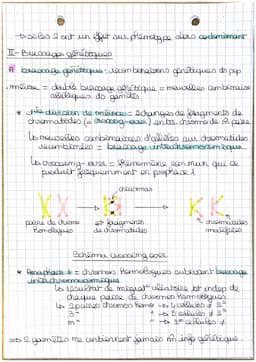 ↳ selon s ont un effet sur phénotype alors codominant
II - Brassages génétiques
A) brassage génétique : recombinaisons génétiques du pop
. méiose = double brassage génétique = nouvelles combinaisons alléliques du gamète
* 1ère division de méiose : échanges de fragments de
chromatides (= crossing-over) entre chromo de la paire
↳ nouvelles combinaisons d'allèles sur chromatides
recombinées = brassage intrachromosomique
↳ crossing-over = phénomène commun qui se
produit fréquemment en prophase 1
chiasmas
paire de chromo
homologues
fragments
de chromatides
chromatides
modifiées
Schéma crossing over
* Anaphase 1 = chromos homologues subissent brassage
interchromosomique
↳ résultat de migrat° aléatoire et indep de
chaque paire de chromos homologues
↳ 2 paires chromos homo → 4 cellules ≠ 2²
3" → 8 cellules ≠ 2³
n" → 2ⁿ cellules ≠
=> 2 gamètes ne contiennent jamais m info génétique